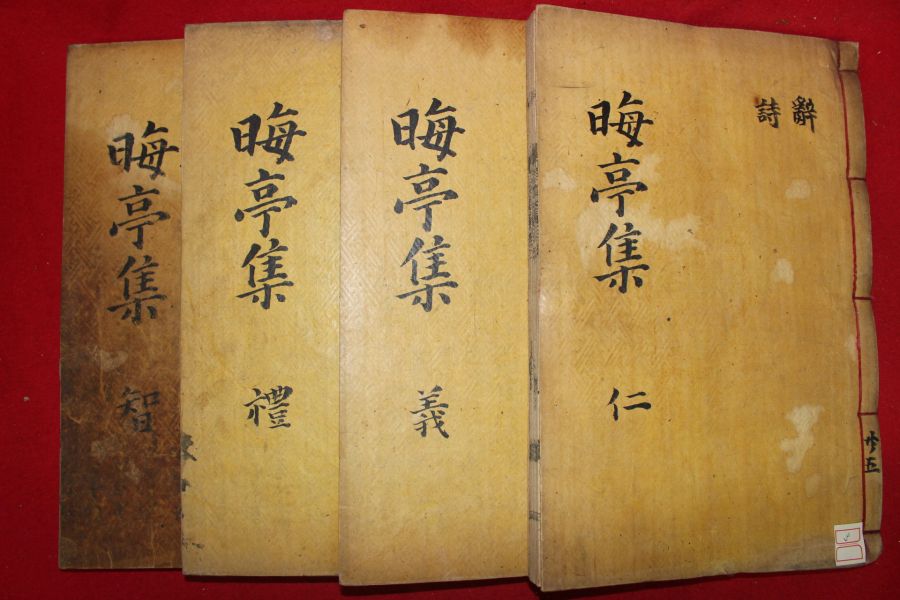 辭
詩
晦亭集 仁
共五
晦亭集 義
晦亭集 禮
晦亭集 智